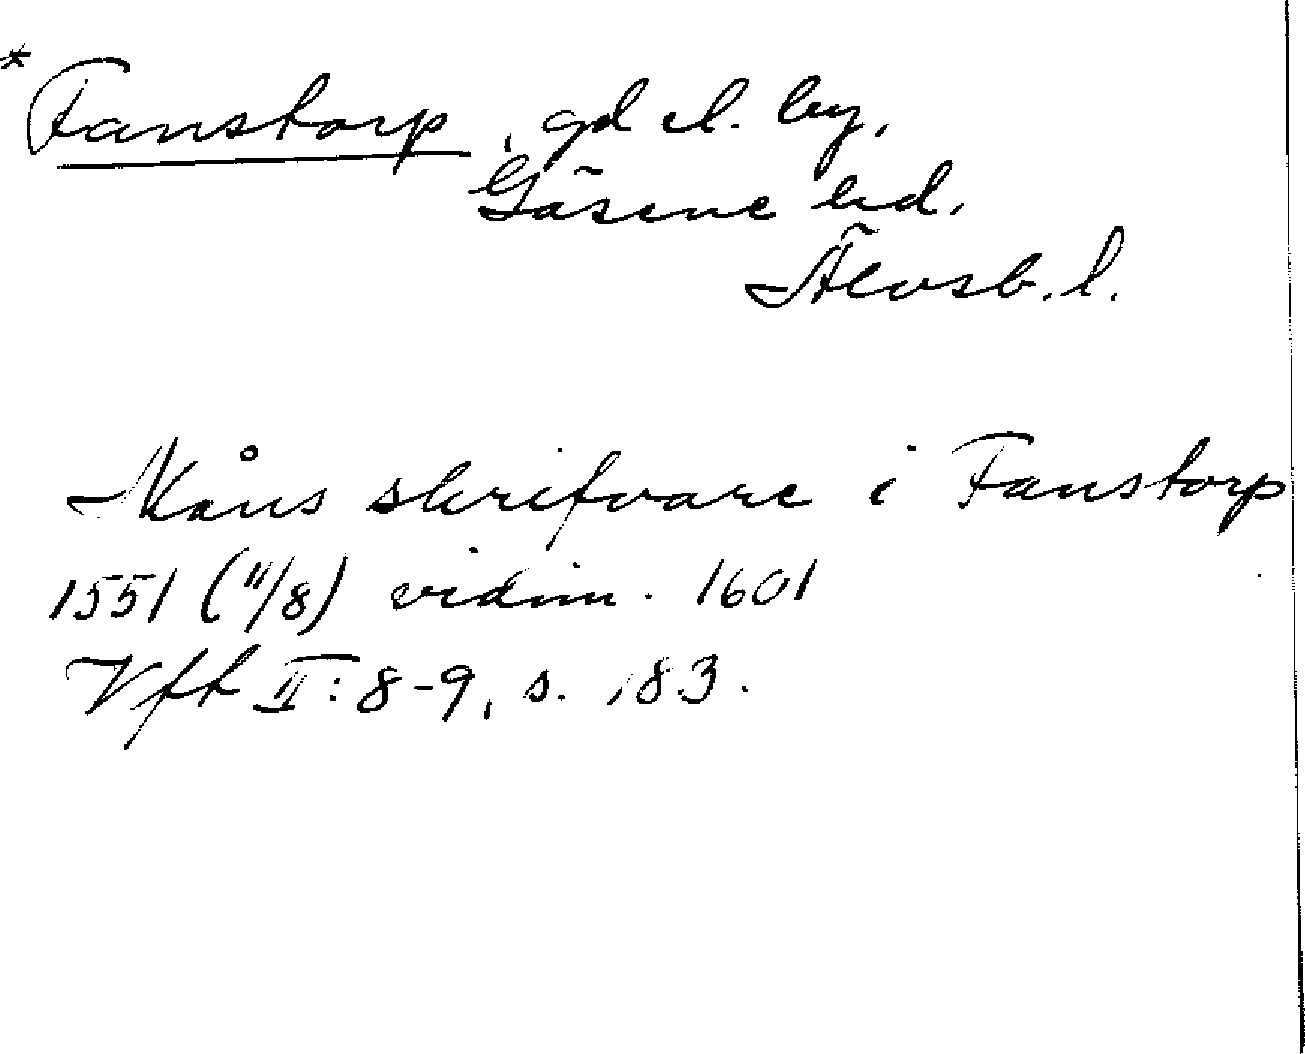 *Fanstorp, gd el. by,
Gäsene hd,
Älvsb. l.
Måns skrifvare i Fanstorp
1551 (11/8) vidim. 1601
Vft II: 8-9, s. 183.